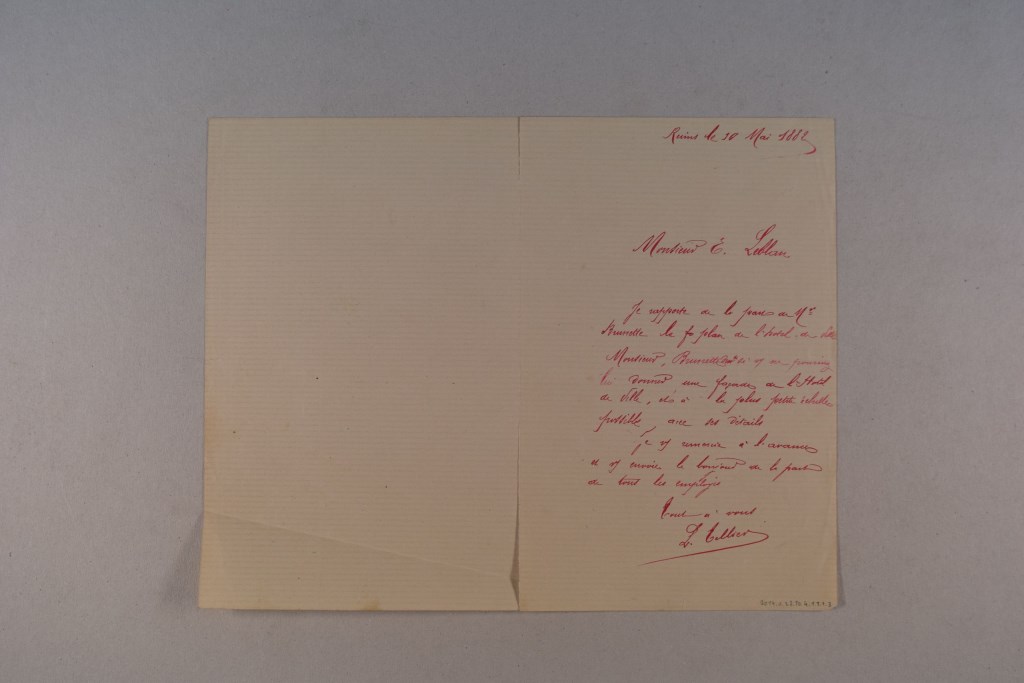 Reims le 20 Mai 1882
Monsieur E. Leblan
Je rapporte de la part de Mr
Brunette le plan de l'hotel de ville
Monsieur, Brunette
donner une façade de l'Hotel
de Ville, à la plus petite échelle
possible, avec ses détails
Je remercie à l'avance
et envoie le bonjour de la part
de tous les employés
Tout à vous
L. Tellier